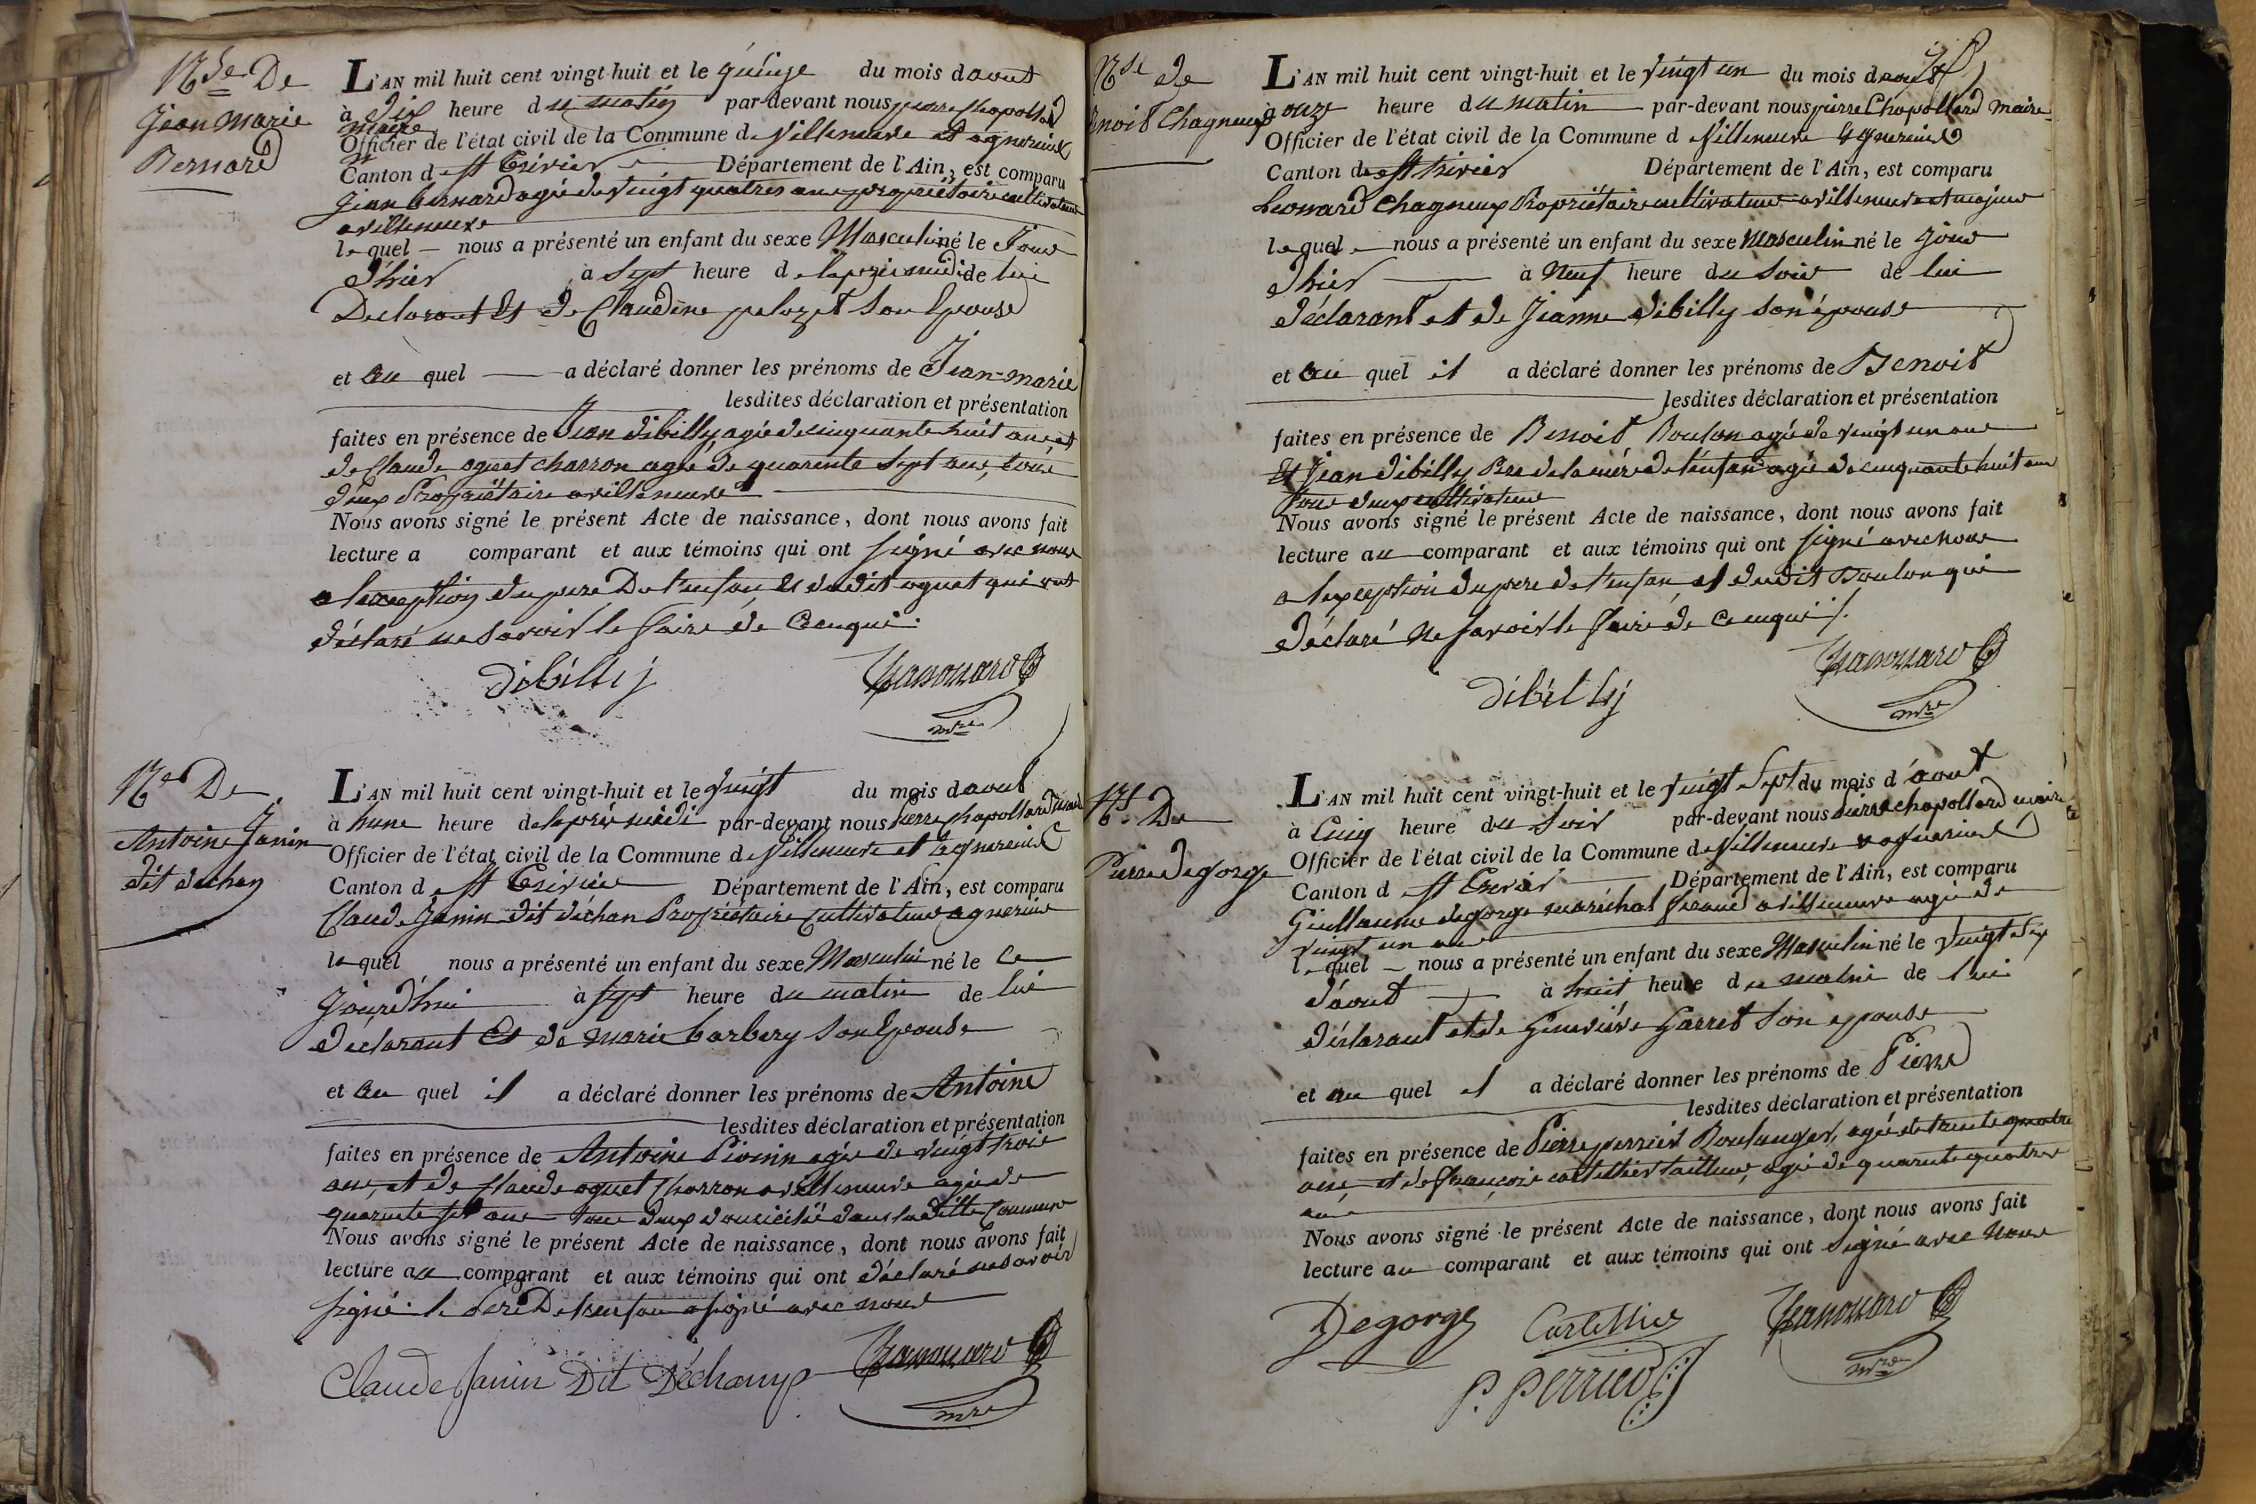 Nse De
Jean Marie
Bernard
L'AN mil huit cent vingt-huit et le quinze du mois daout
à dix heure du matin par-devant nous pierre chapollard
maire
Officier de l'état civil de la Commune de Villeneuve et agnereins
Canton de st Trivier Département de l'Ain, est comparu
Jean bernard agé de vingt quatres ans propriétaire cultivateur
a villeneuve
lequel nous a présenté un enfant du sexe Masculin né le Jour
d'hier à Sept heure de lapres midi de lui
Declarant Et de Claudine pelozet Son Epouse
et au quel a déclaré donner les prénoms de Jean-marie
lesdites déclaration et présentation
faites en présence de Jean dibilly, agé de cinquante huit ans et
de Claude oguet charron agé de quarente Sept ans, tous
deux Propriétaire a villeneuve
Nous avons signé le présent Acte de naissance, dont nous avons fait
lecture a comparant et aux témoins qui ont signé avec nous
a lexception du pere De l'enfan, et dudit oguet qui ont
déclaré ne Savoir le faire de Cenquis.
dibilly
mre
Ne De
Antoine Janin
dit dechan
L'AN mil huit cent vingt-huit et le vingt du mois daout
à hune heure de laprés midi par-devant nous Pierre chapollard maire
Officier de l'état civil de la Commune de Villeneuve et agnereins
Canton de st Trivier Département de l'Ain, est comparu
Claude Janin dit déchan Propriétaire Cultivateur a gnereins
lequel nous a présenté un enfant du sexe Masculin né le Ce
Jourd'hui à sept heure du matin de lui
declarant Et de marie barbery Son Epouse
et au quel il a déclaré donner les prénoms de Antoine
lesdites déclaration et présentation
faites en présence de Antoine Pivoin agé de vingt trois
ans, et de Claude oguet Charron a villeneuve agé de
quarente Sept ans tous deux domicilié dans ladite Commune
Nous avons signé le présent Acte de naissance, dont nous avons fait
lecture au comparant et aux témoins qui ont déclaré ne Savoir
signé. le Pere De l'enfan a signé avec nous
Claude Janin Dit Déchamp
mre
Nse de
Benoit Chagneux
L'AN mil huit cent vingt-huit et le vingt un du mois daout
à onze heure du matin par-devant nous pierre Chapollard maire
Officier de l'état civil de la Commune d Villeneuve & gnereins
Canton de st trivier Département de l'Ain, est comparu
Leonard Chagneux Propriétaire cultivateur a villeneuve et majeur
lequel nous a présenté un enfant du sexe Masculin né le Jour
d'hier à Neuf heure du Soir de lui
déclarant et de Jeanne dibilly son épouse
et au quel il a déclaré donner les prénoms de Benoit
lesdites déclaration et présentation
faites en présence de Benoit Boulon agé de vingt un ans
Et Jean dibilly Pere de la mére de l'enfan agé de cinquante huit ans
tous deux cultivateur
Nous avons signé le présent Acte de naissance, dont nous avons fait
lecture au comparant et aux témoins qui ont signé avec nous
a lexception du pere de l'enfan et dudit Boulon qui
déclaré Ne Savoir le faire de Cenquis.
dibilly
mre
Nse De
Pierre Degorge
L'AN mil huit cent vingt-huit et le vingt Sept du mois d'aout
à Cinq heure du Soir par-devant nous pierre chapollard maire
Officier de l'état civil de la Commune de Villeneuve & agnereins
Canton d st Trivier Département de l'Ain, est comparu
Guillaume degorge maréchal ferand a villeneuve agé de
vingt un ans
lequel nous a présenté un enfant du sexe Masculin né le vingt Six
d'aout à huit heure du matin de lui
déclarant et de Genevieve Garret Son epouse
et au quel il a déclaré donner les prénoms de Pierre
lesdites déclaration et présentation
faites en présence de Pierre perrier Boulanger, agé de trente quatre
ans et de françois cortellier tailleur, agé de quarente quatre
ans
Nous avons signé le présent Acte de naissance, dont nous avons fait
lecture au comparant et aux témoins qui ont signé avec Nous
Degorge Cortellier
mre
P. Perrier